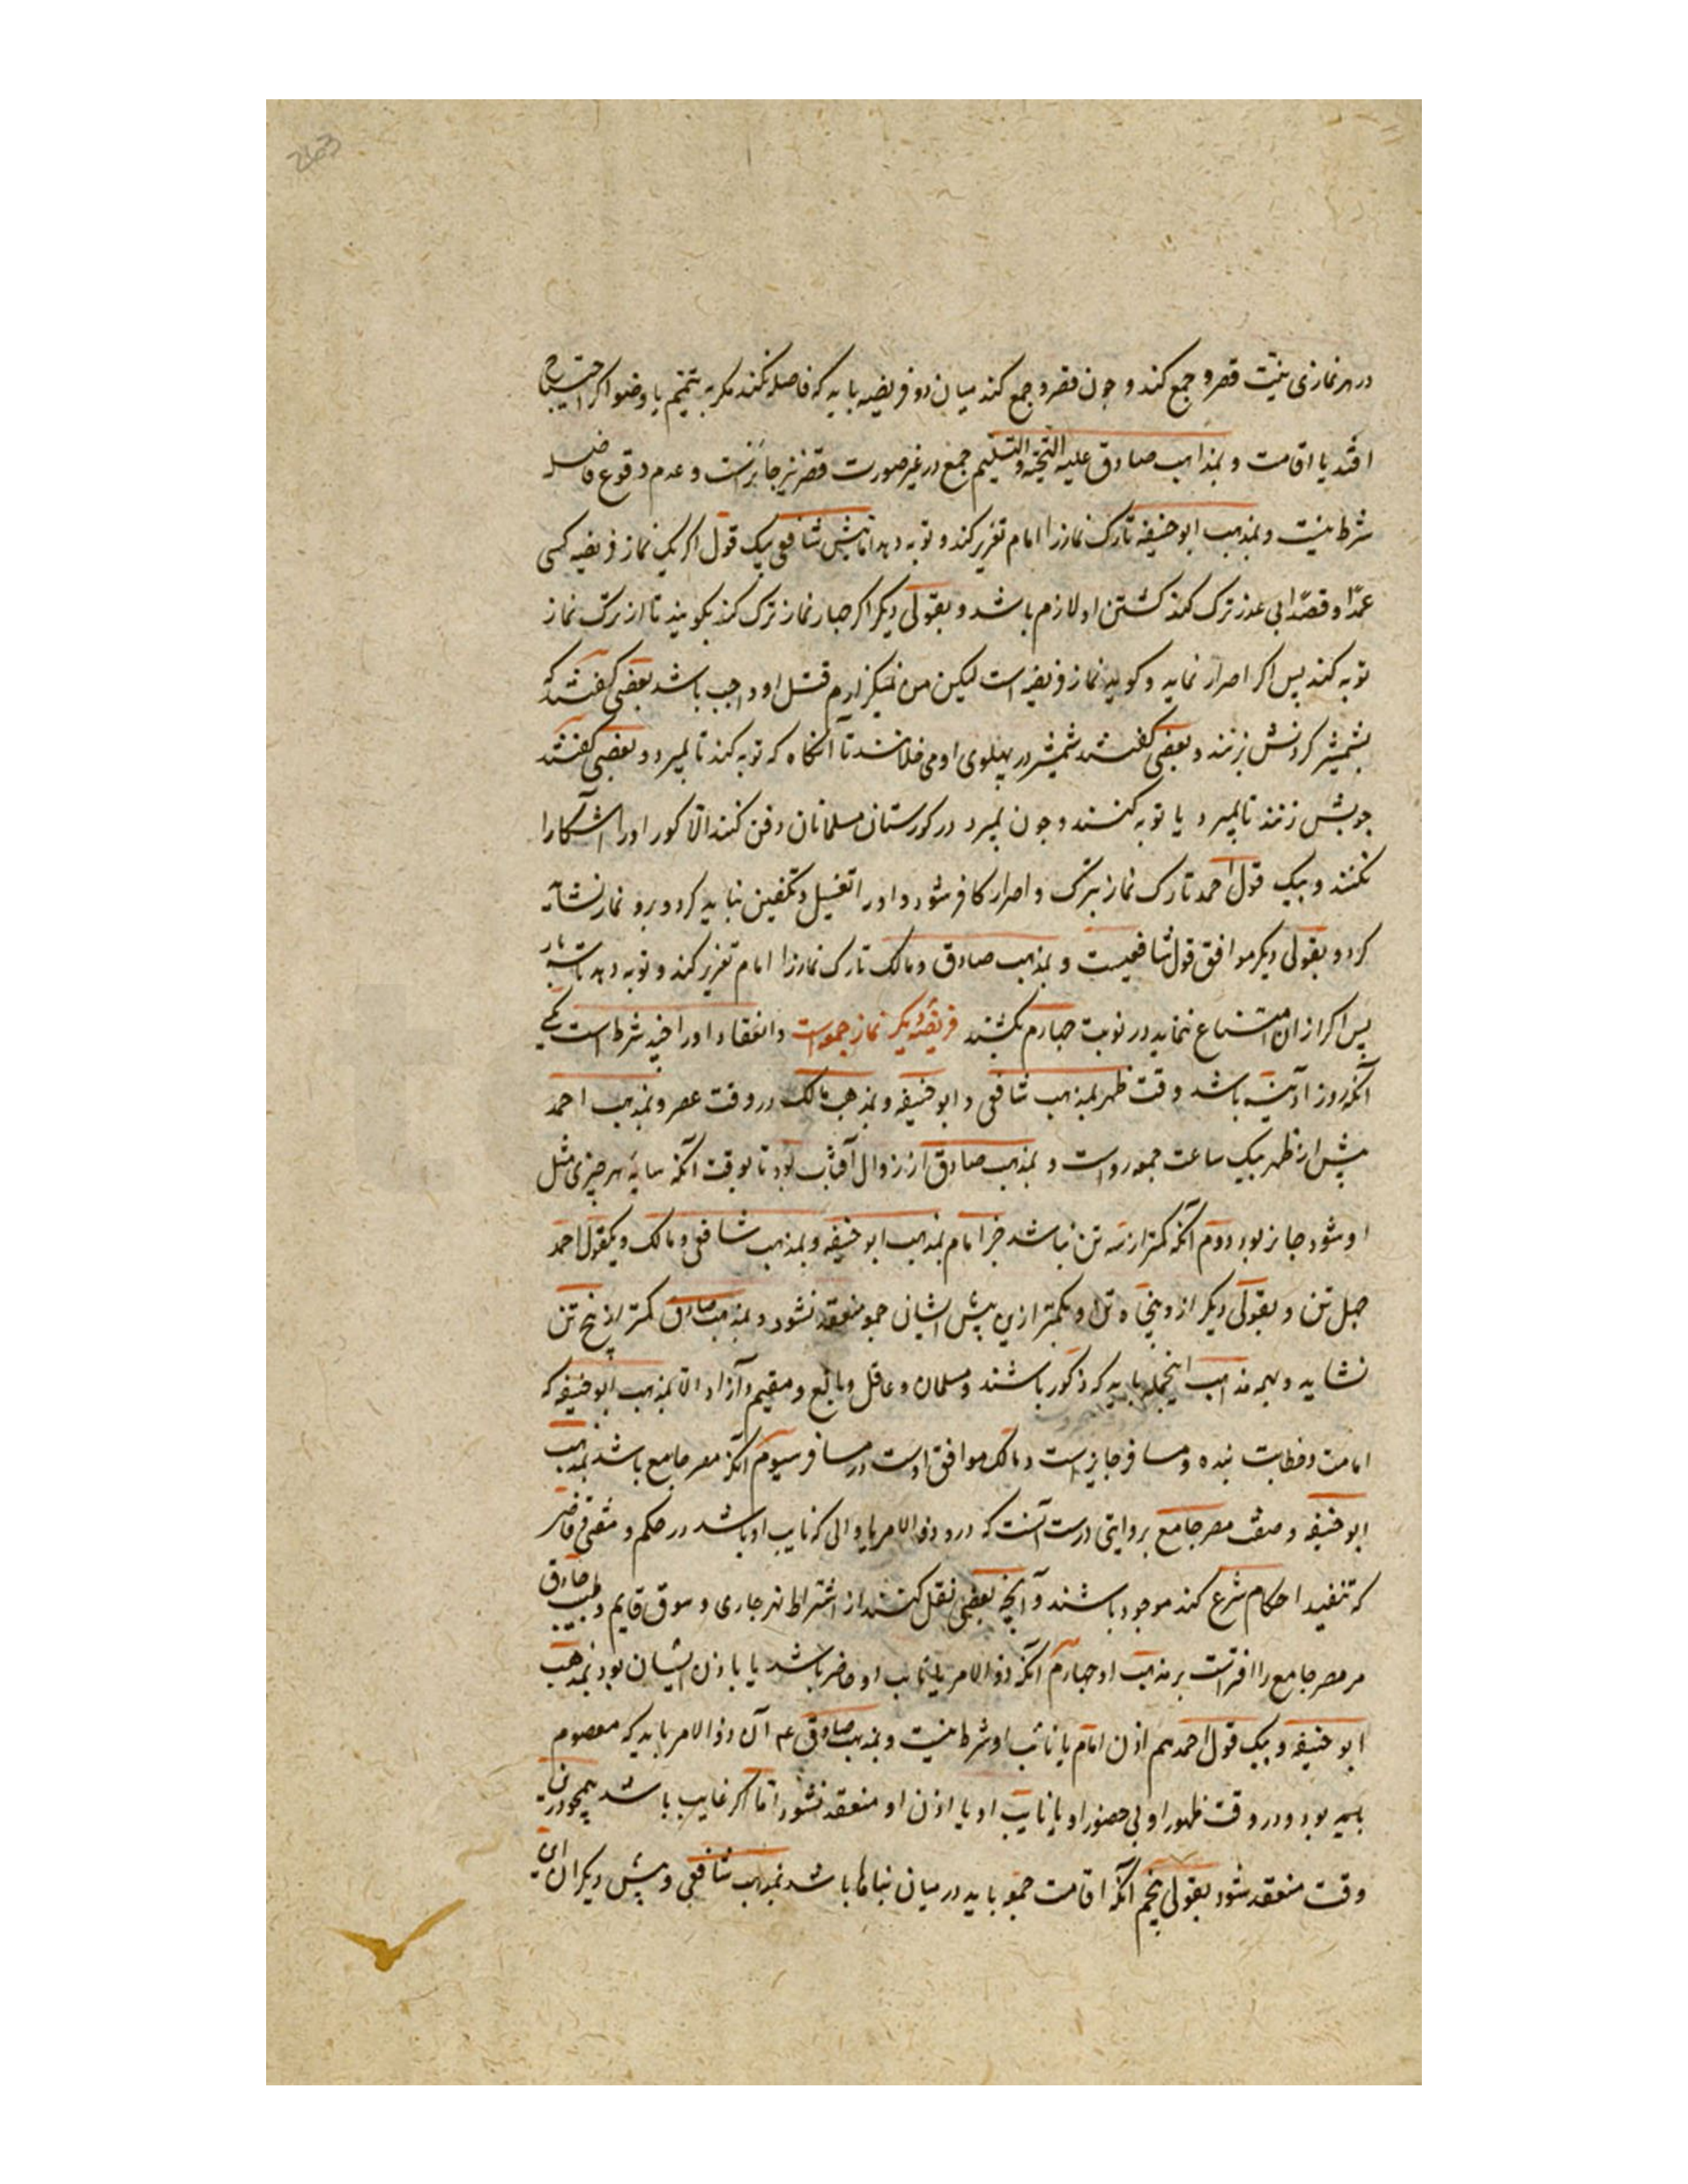 263
در هر نمازی بنیّت قصر و جمع کند و چون قصر و جمع کند میان دو فریضه باید که فاصله نکند مکر به تیمّم یا وضو اکر احتیاج
افتد یا اقامت و بمذاهب صادق علیه التحیّة و التسلیم جمع در غیر صورت قصر نیز جایزست و عدم وقوع فاصله
شرط نیست و بمذهب ابو حنیفه تارک نماز را امام تعزیر کند و توبه دهد اما پیش شافعی بیک قول اکر یک نماز فریضه کسی
عمدًا و قصدًا بی عذر ترک کند کشتن او لازم باشد و بقولی دیکر اکر چهار نماز ترک کند بکویند تا از ترک نماز
توبه کند پس اکر اصرار نماید و کوید نماز فریضه است لیکن من نمیکزارم قتل او واجب باشد بعضی کفتند که
بشمشیر کردنش بزنند و بعضی کفتند شمشیر در پهلوی او می خلانند تا آنکاه که توبه کند تا بمیرد و بعضی کفتند
چوبش زنند تا بمیرد یا توبه کنند و چون بمیرد در کورستان مسلمانان دفن کنند الّا کور او را آشکارا
نکنند و بیک قول احمد تارک نماز بترک و اصرار کافر شود و او را تغسیل و تکفین نباید کرد و برو نماز نشاید
کرد و بقولی دیکر موافق قول شافعیست و بمذهب صادق و مالک تارک نماز را امام تعزیر کند و توبه دهد تا سه بار
پس اکر از ان امتناع ننماید در نوبت چهارم بکشند فریضهٔ دیکر نماز جمعه است و انعقاد او را چند شرط است یکی
آنکه روز آدینه باشد وقت ظهر بمذهب شافعی و ابو حنیفه و بمذهب مالک در وقت عصر و بمذهب احمد
پیش از ظهر بیک ساعت جمعه رواست و بمذهب صادق از زوال آفتاب بود تا بوقت آنکه سایهٔ هر چیزی مثل
او شود جایز بود دوم آنکه کمتر از سه تن نباشد جز امام بمذهب ابو حنیفه و بمذهب شافعی و مالک و بیکقول احمد
چهل تن و بقولی دیکر ازو پنجاه تن و بکمتر ازین پیش ایشان جمعه منعقد نشود و بمذهب صادق کمتر از پنج تن
نشاید و بهمه مذاهب اینجمله باید که ذکور باشند و مسلمان و عاقل و بالغ و مقیم و آزاد الّا بمذهب ابو حنیفه که
امامت و خطابت بنده و مسافر جایزست و مالک موافق اوست در مسافر سیوم آنکه مصر جامع باشد بمذهب
ابو حنیفه و صفت مصر جامع بروایتی درست آنست که درو ذو الامر یا والی که نایب او باشد در حکم و مفتی و قاضی
که تنفیذ احکام شرع کند موجود باشند و آنچه بعضی نقل کنند از اشتراط نهر جاری و سوق قایم و طبیب حاذق
مر مصر جامع را افتراست بر مذهب او چهارم آنکه ذو الامر یا نایب او حاضر باشد یا باذن ایشان بود بمذهب
ابو حنیفه و بیک قول احمد هم اذن امام یا نائب او شرط نیست و بمذهب صادق عم آن ذو الامر باید که معصوم
بود و در وقت ظهور او بی حضور او یا نایب او یا اذن او منعقد نشود اما اکر غایب باشد همچو درین
وقت منعقد شود بقولی پنجم آنکه اقامت جمعه باید در میان بناها باشد بمذهب شافعی و پیش دیکران این